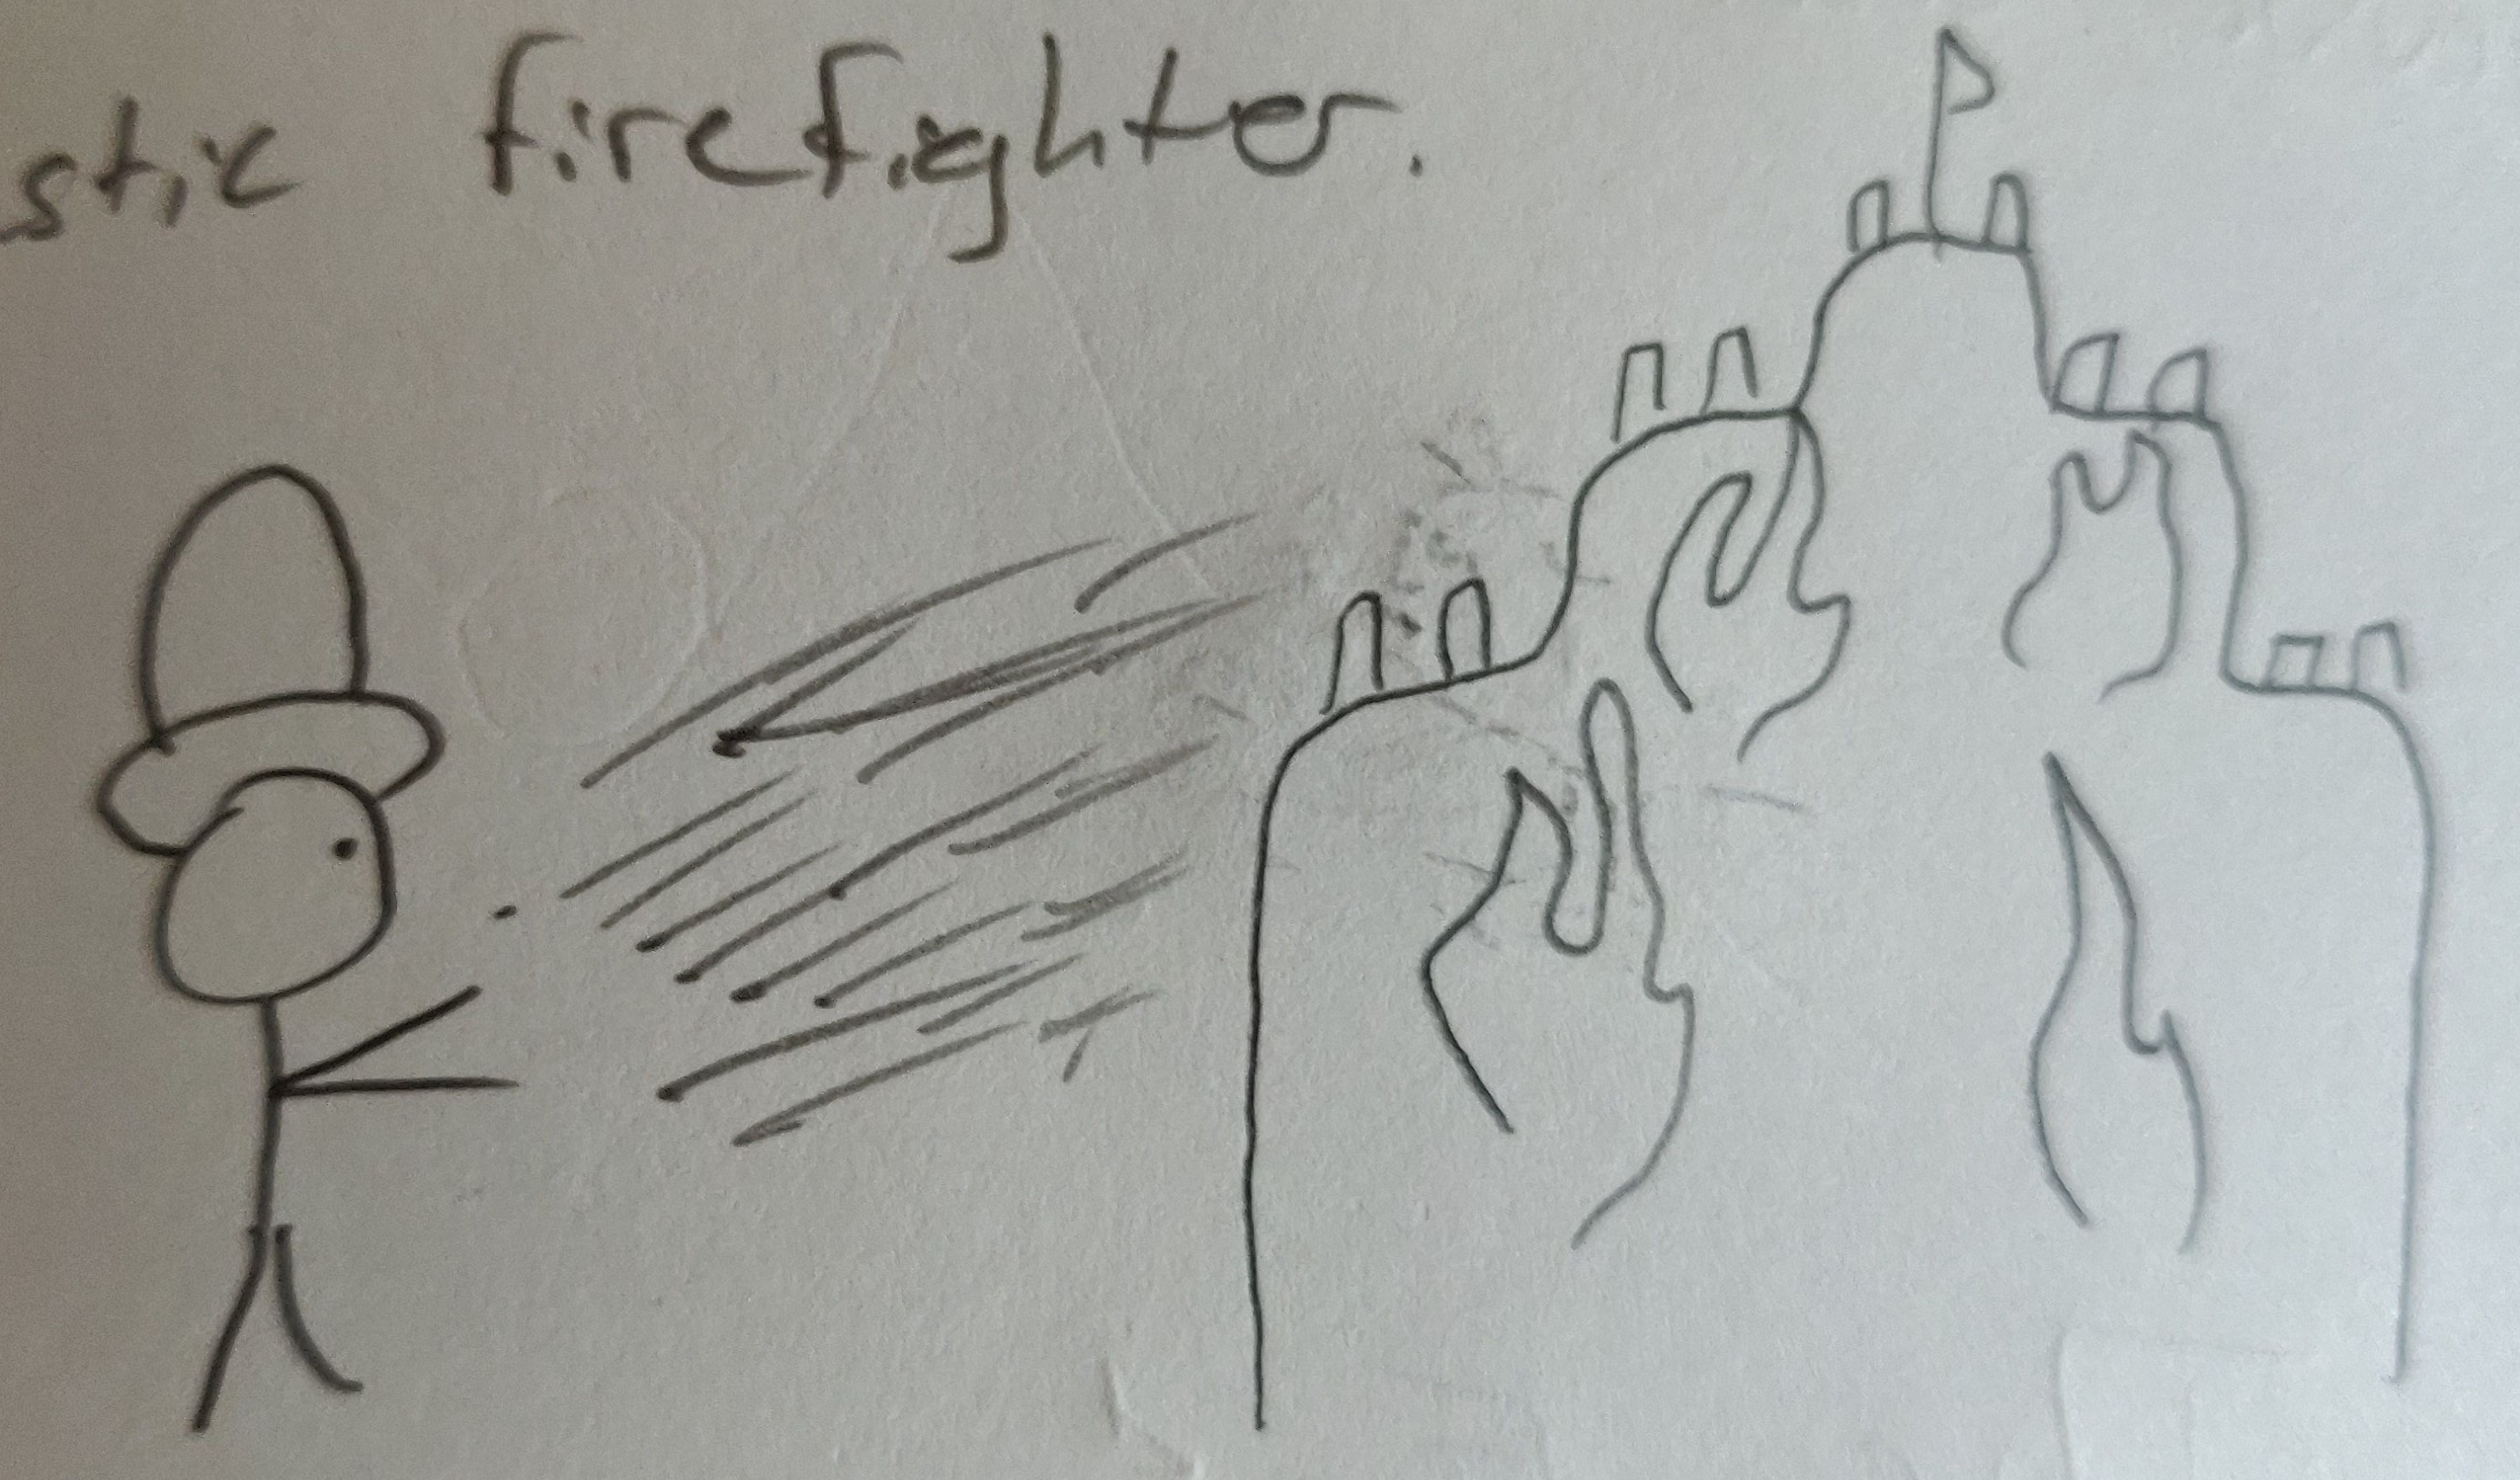 stic firefighter.